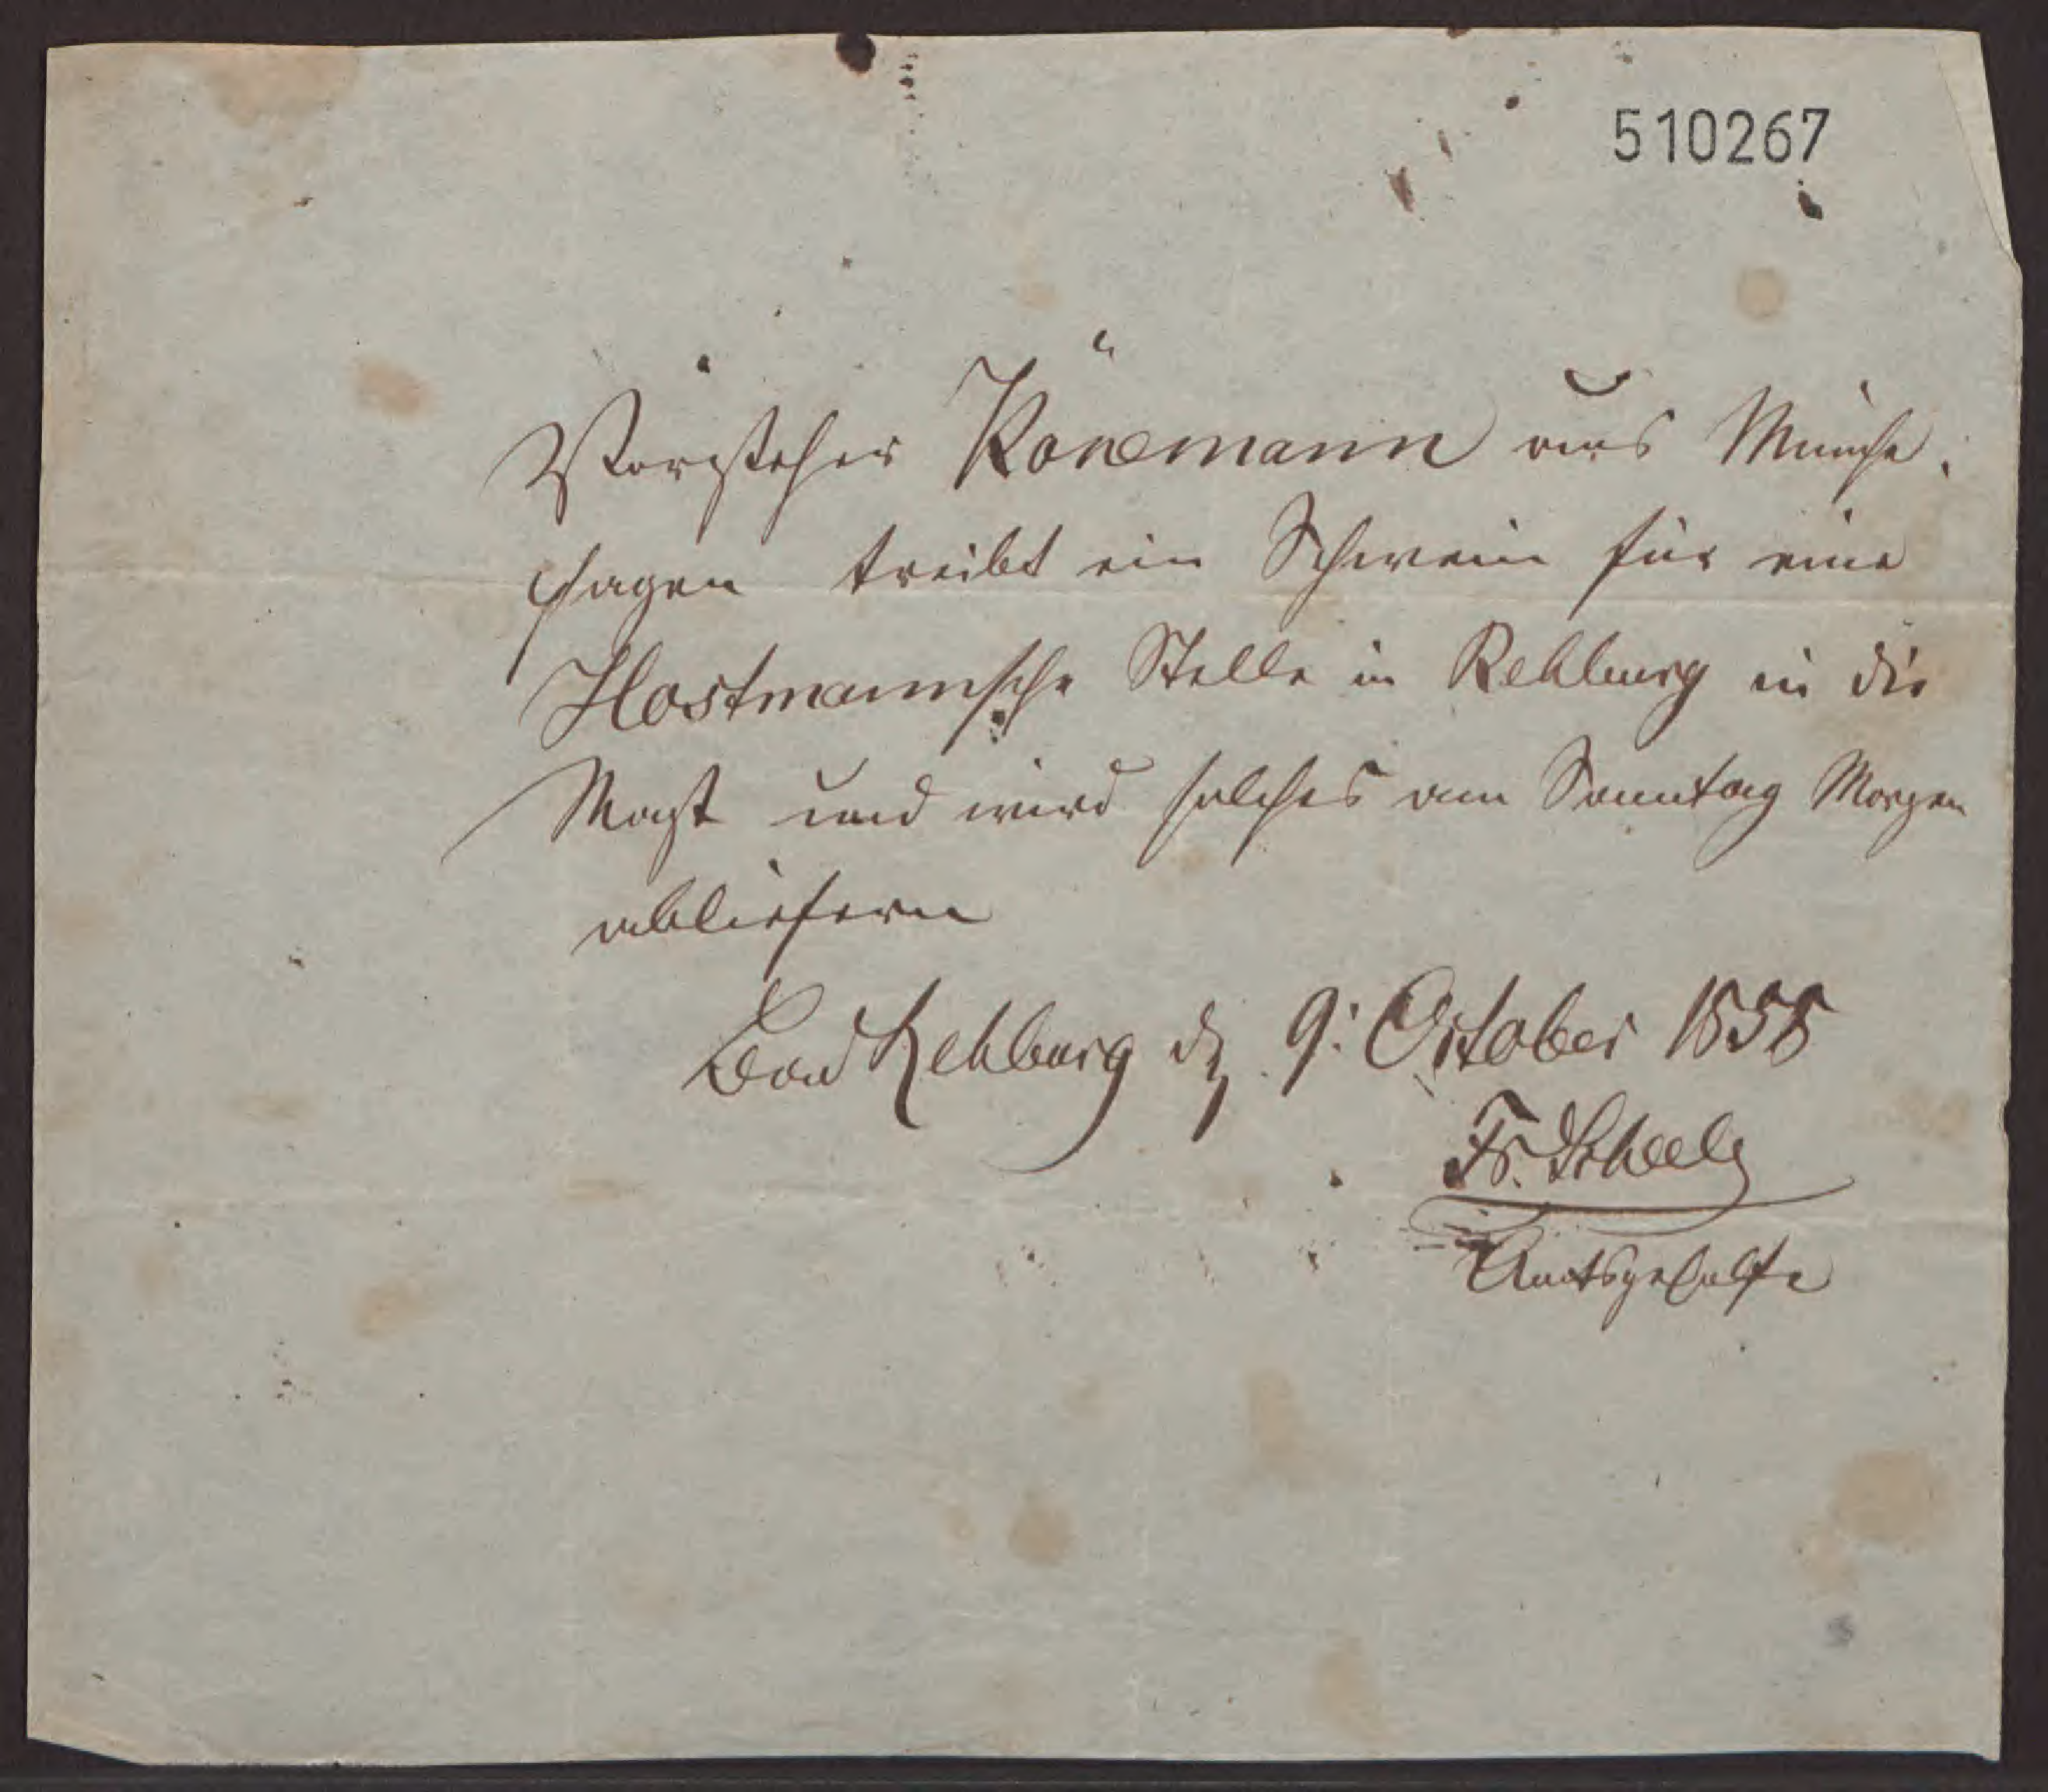 510267
Vorsteher Könemann aus Münche-
hagen treibt ein Schwein für eine
Hostmannsche Stelle in Rehburg in die
Mast und wird solches am Sonntag Morgen
abliefern
Bad Rehburg d 9: October 1858
Fr. Scheele
Amtsgehülfe